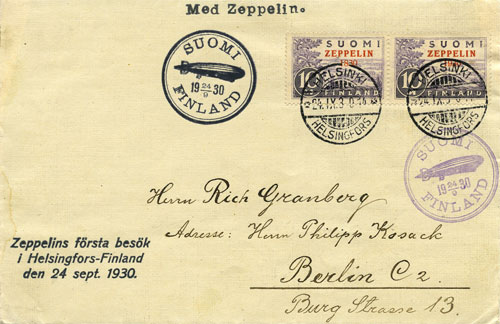 Med Zeppelin.
SUOMI
19 24/9 30
FINLAND
SUOMI
ZEPPELIN
1930
10
FINLAND
SUOMI
ZEPPELIN
10
FINLAND
HELSINKI
24.IX.3
HELSINGFORS
HELSINKI
24.IX.3
HELSINGFORS
SUOMI
19 24/9 30
FINLAND
Herrn Rich Granberg
Adresse: Herrn Philipp Kosack
Berlin C2.
Burg Strasse 13.
Zeppelins första besök
i Helsingfors-Finland
den 24 sept. 1930.